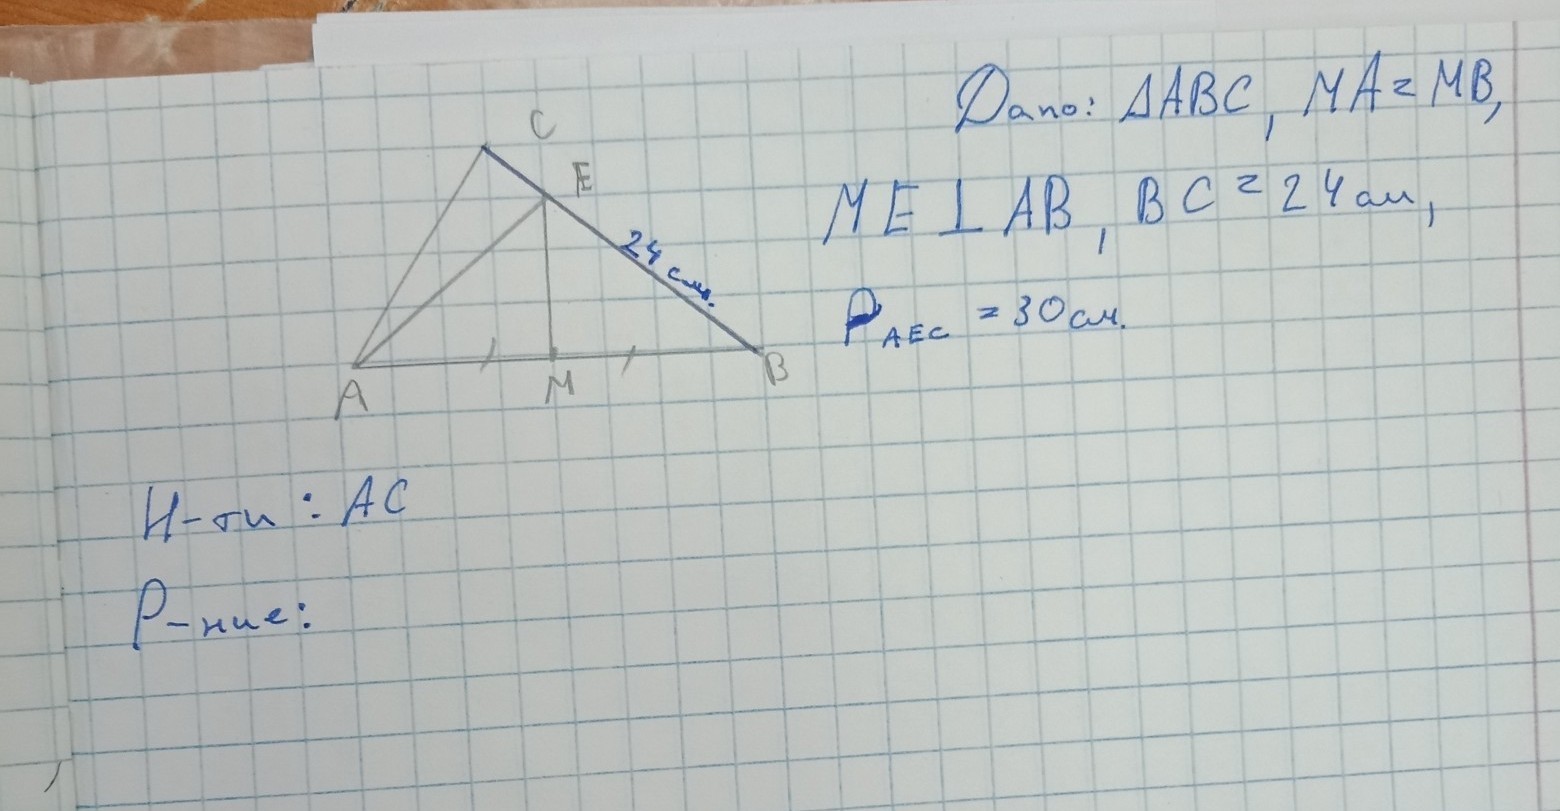 Дано: ΔABC, MA = MB,
ME ⊥ AB, BC = 24 см,
P AEC = 30 см.
C
E
24 см.
A
M
B
Н-ти: AC
Р-ние: